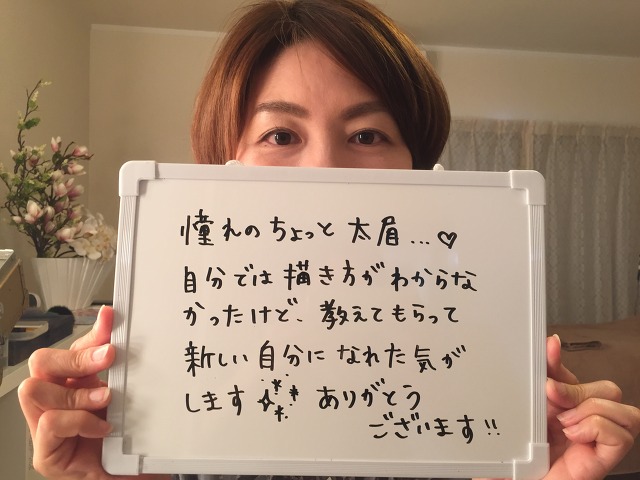 憧れのちょっと 太眉...♡
自分では描き方がわからな
かったけど、教えてもらって
新しい自分になれた気が
します ありがとう
ございます!!